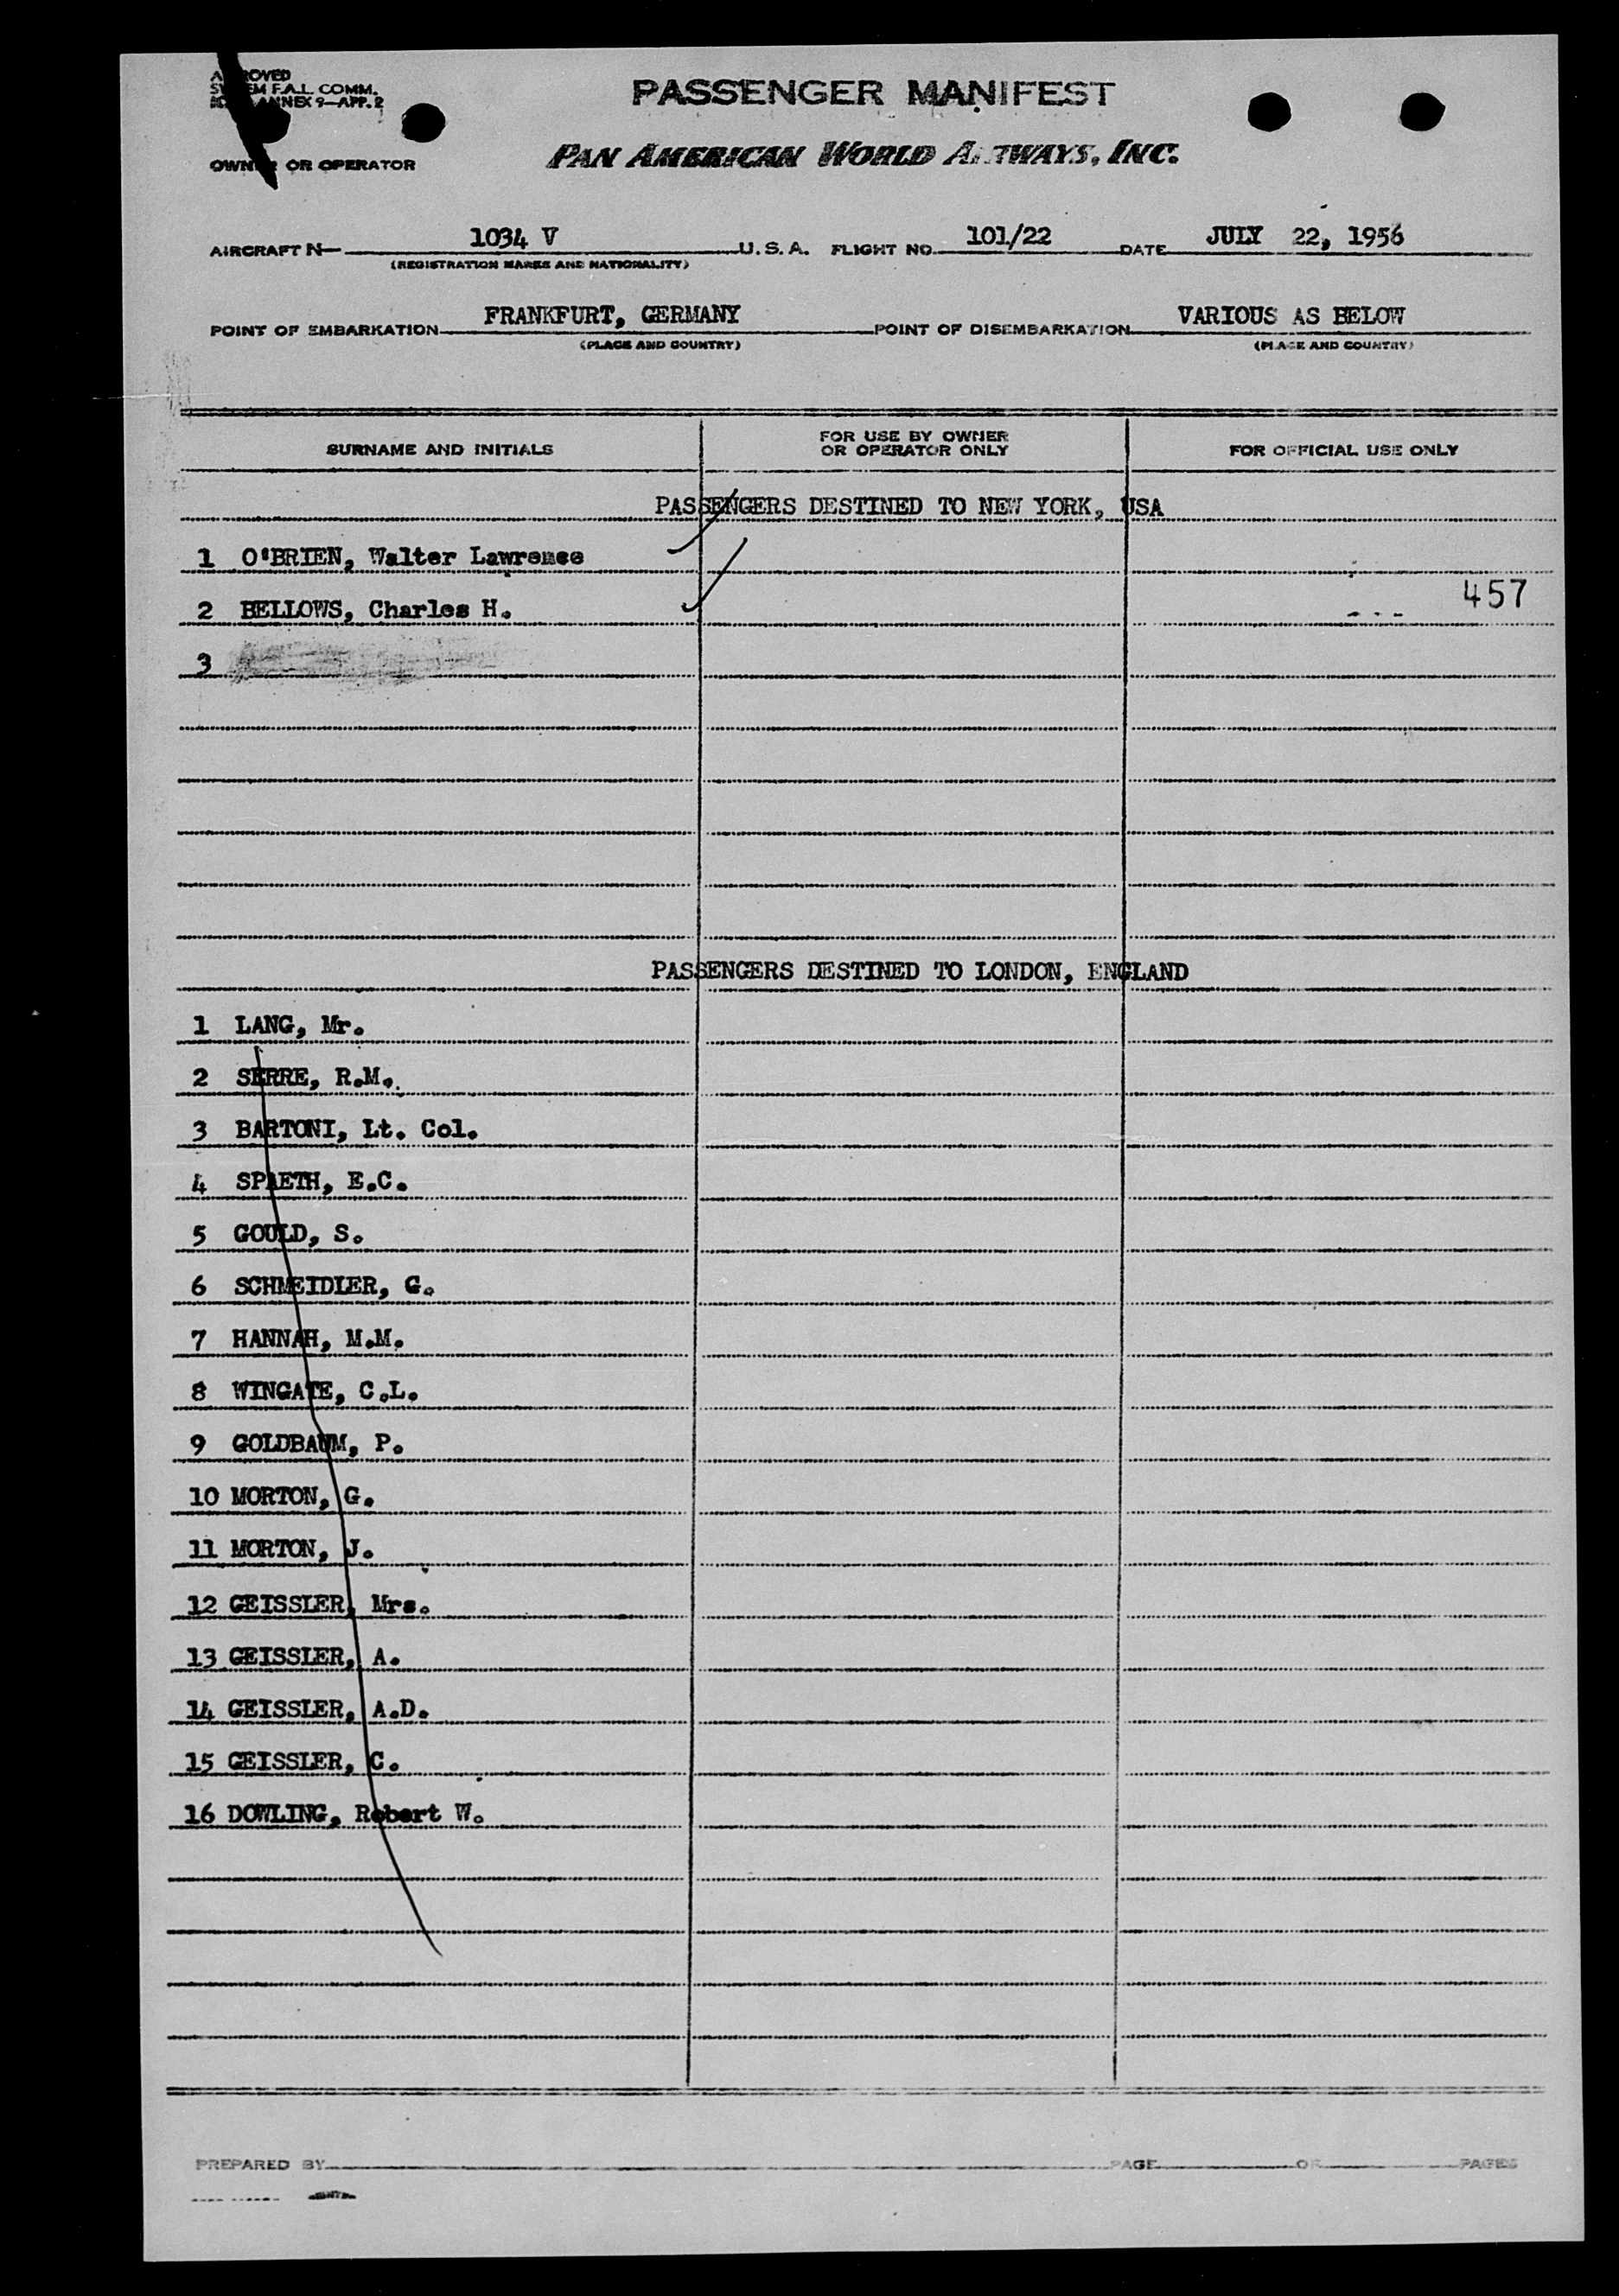 PASSENGER MANIFEST
F.A.L. COMM.
ANNEX 9—APP. 2
OWNER OR OPERATOR
PAN AMERICAN WORLD AIRWAYS, INC.
AIRCRAFT N— 1034 V U. S. A. FLIGHT NO. 101/22 DATE JULY 22, 1956
(REGISTRATION MARKS AND NATIONALITY)
POINT OF EMBARKATION FRANKFURT, GERMANY POINT OF DISEMBARKATION VARIOUS AS BELOW
(PLACE AND COUNTRY) (PLACE AND COUNTRY)
SURNAME AND INITIALS FOR USE BY OWNER OR OPERATOR ONLY FOR OFFICIAL USE ONLY
PASSENGERS DESTINED TO NEW YORK, USA
1 O'BRIEN, Walter Lawrence
457
2 BELLOWS, Charles H.
3
PASSENGERS DESTINED TO LONDON, ENGLAND
1 LANG, Mr.
2 SERRE, R.M.
3 BARTONI, Lt. Col.
4 SPAETH, E.C.
5 GOULD, S.
6 SCHMEIDLER, G.
7 HANNAH, M.M.
8 WINGATE, C.L.
9 GOLDBAUM, P.
10 MORTON, G.
11 MORTON, J.
12 GEISSLER, Mrs.
13 GEISSLER, A.
14 GEISSLER, A.D.
15 GEISSLER, C.
16 DOWLING, Robert W.
PREPARED BY PAGE OF PAGES